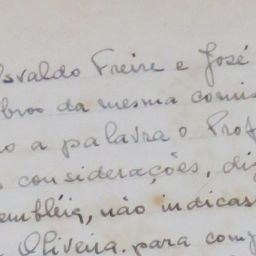 svaldo Freire e José
bros da mesma comis
o a palavra o Prof
s considerações, diz
embléia, não indicas
Oliveira. para comp